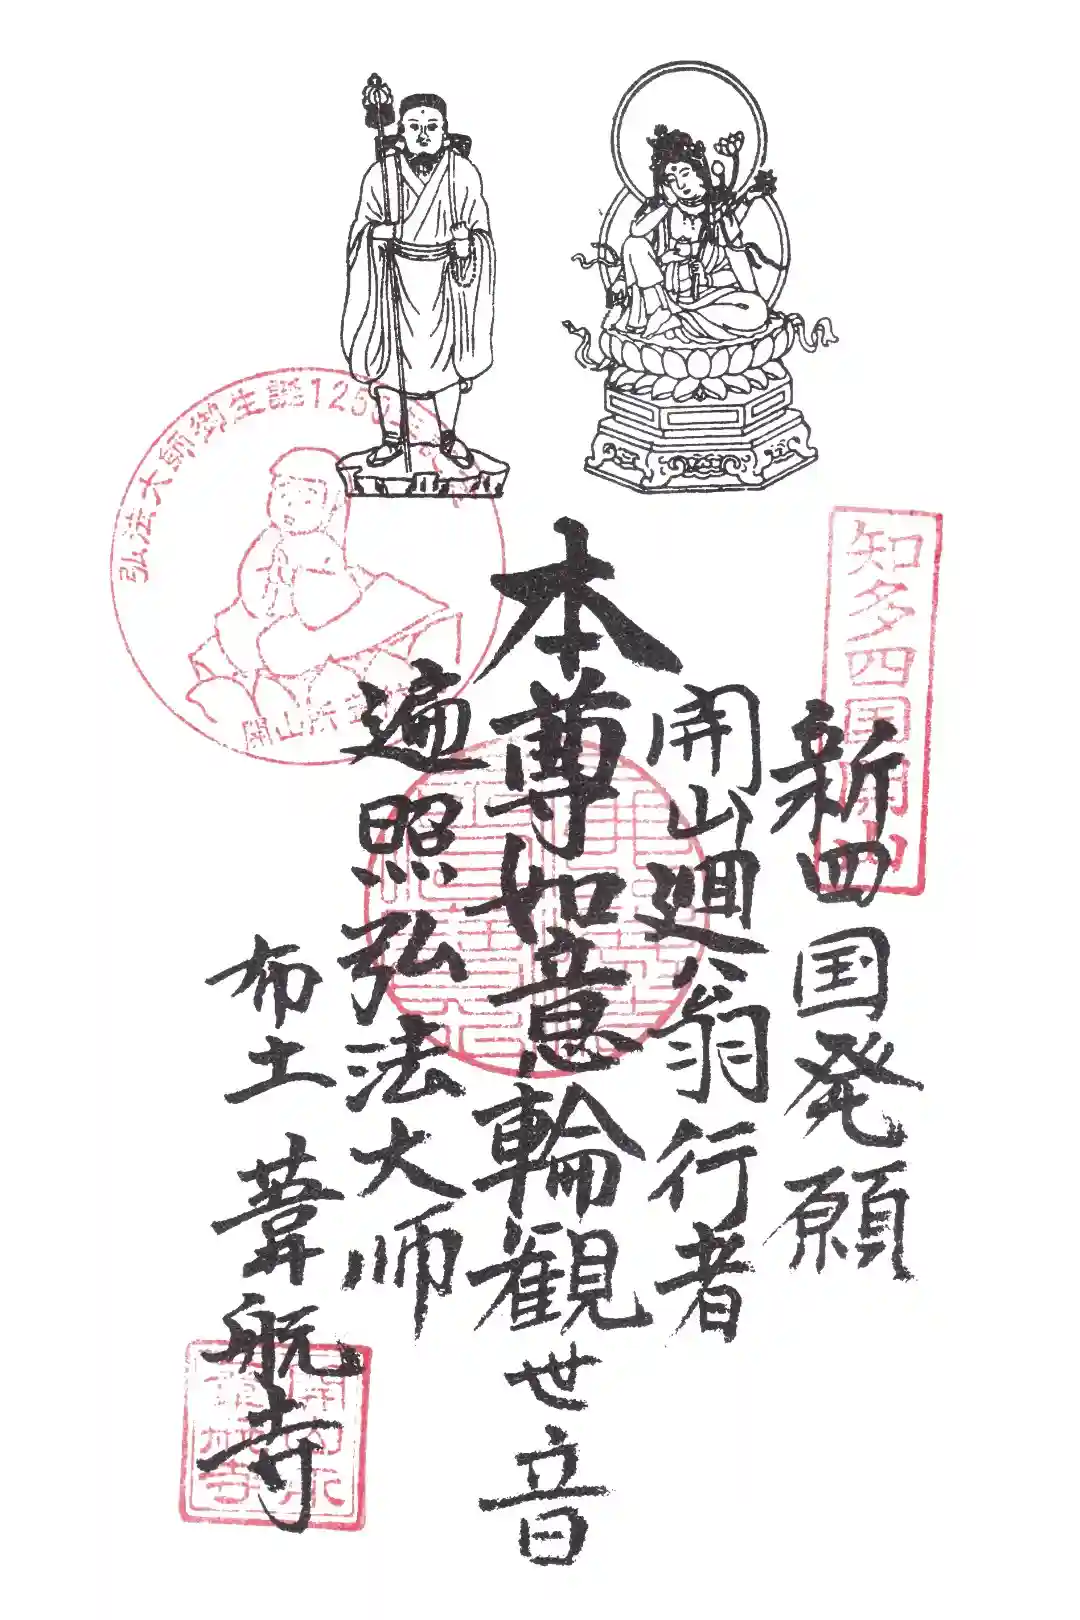 知多四国開山
新四国発願
開山廻翁行者
本尊如意輪観世音
遍照弘法大师
布土 葦航寺
弘法大師御生誕1250年
開山所